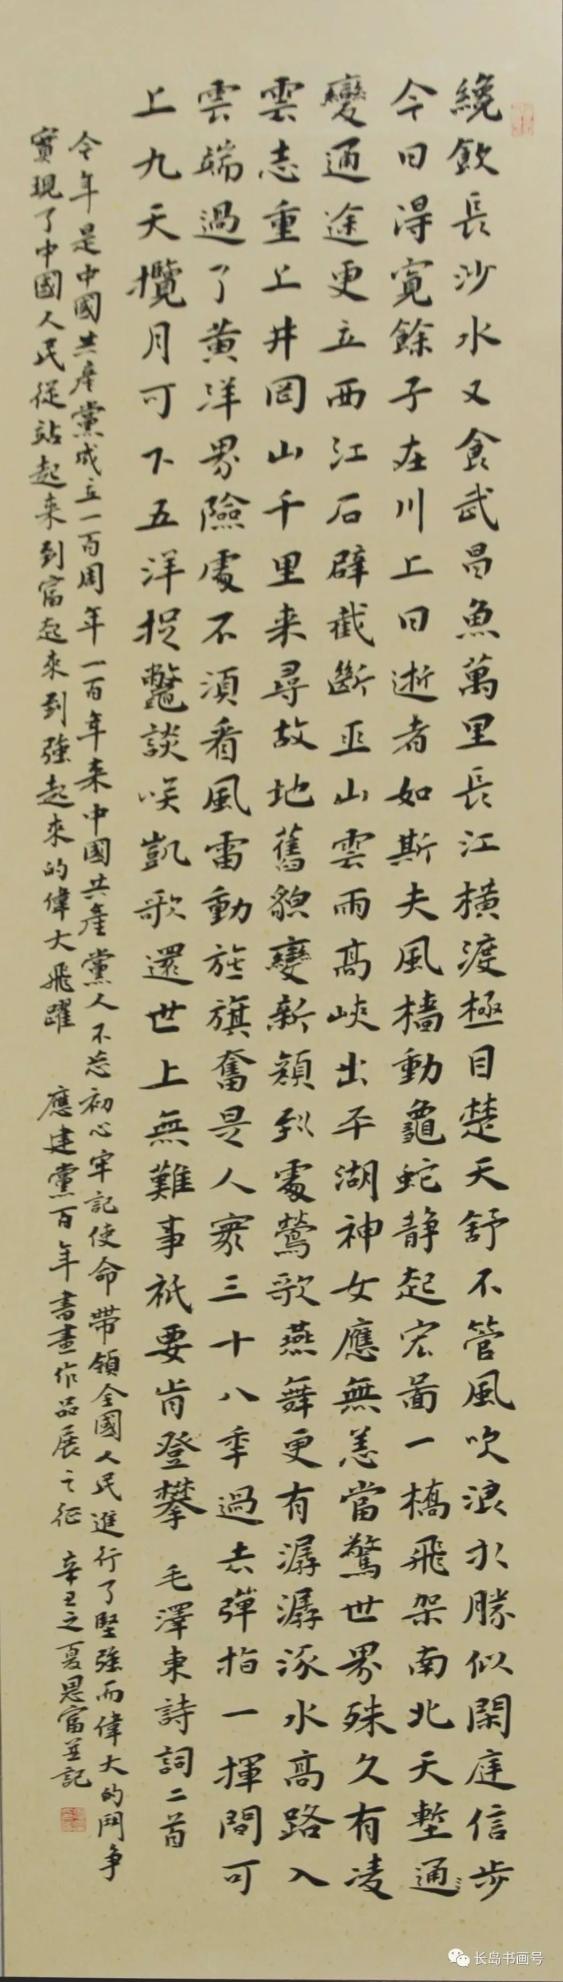 纔飲長沙水又食武昌魚萬里長江橫渡極目楚天舒不管風吹浪打勝似閑庭信步
今日得寬餘子在川上曰逝者如斯夫風檣動龜蛇静起宏圖一橋飛架南北天塹通
變通途更立西江石壁截斷巫山雲雨高峽出平湖神女應無恙當驚世界殊久有凌
雲志重上井岡山千里来尋故地舊貌變新顏到處鶯歌燕舞更有潺潺流水高路入
雲端過了黄洋界險處不須看風雷動旌旗奮是人寰三十八年過去彈指一揮間可
上九天攬月可下五洋捉鼈談笑凱歌還世上無難事祇要肯登攀 毛澤東詩詞二首
今年是中國共産黨成立一百周年一百年来中國共産黨人不忘初心牢記使命帶領全國人民進行了堅強而偉大的鬥争
實現了中國人民從站起来到富起來到強起來的偉大飛躍 應建黨百年書畫作品展之征 辛丑之夏恩富並記
长岛书画号